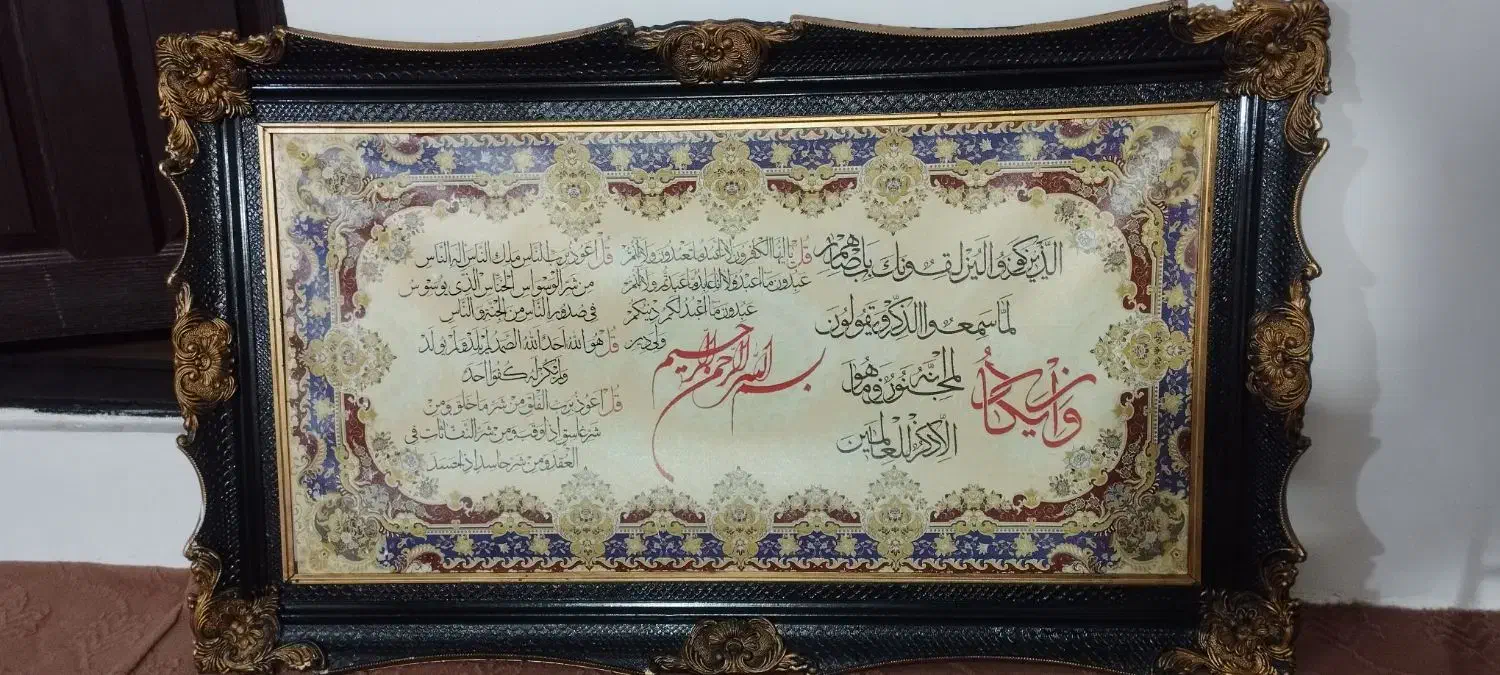 وَإِن يَكَادُ
الَّذِينَ كَفَرُوا لَيُزْلِقُونَكَ بِأَبْصَارِهِمْ
لَمَّا سَمِعُوا الذِّكْرَ وَيَقُولُونَ
إِنَّهُ لَمَجْنُونٌ وَمَا هُوَ
إِلَّا ذِكْرٌ لِلْعَالَمِينَ
بسم الله الرحمن الرحيم
قُل يا أيها الكافرون لا أعبد ما تعبدون ولا أنتم
عبدون ما أعبد ولا أنا عابد ما عبدتم ولا أنتم
عبدون ما أعبد لكم دينكم
ولي دين
قُل أعوذ برب الناس ملك الناس اله الناس
من شر الوسواس الخناس الذي يوسوس
في صدور الناس من الجنة والناس
قُل هو الله احد الله الصمد لم يلد ولم يولد
ولم يكن له كفوا احد
قُل أعوذ برب الفلق من شر ما خلق ومن
شر غاسق اذا وقب ومن شر النفاثات في
العقد ومن شر حاسد اذا حسد